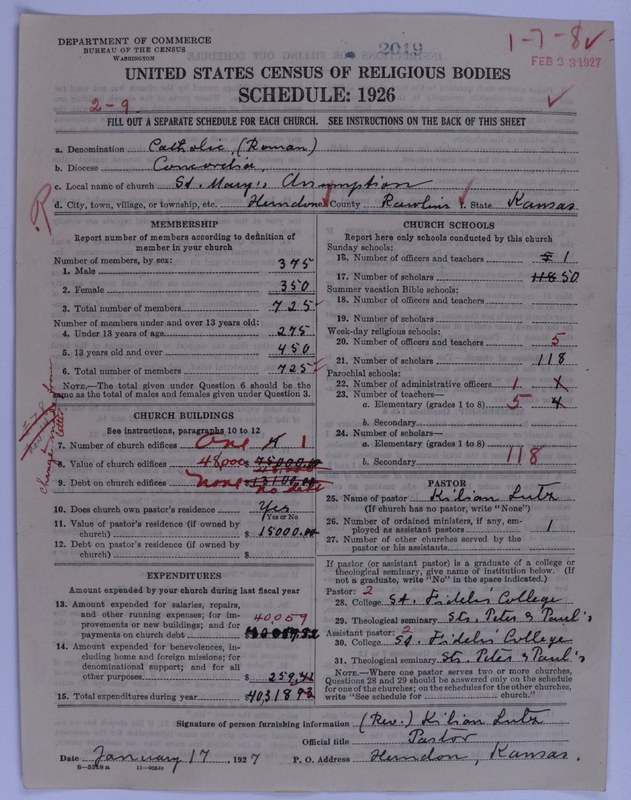 DEPARTMENT OF COMMERCE
BUREAU OF THE CENSUS
WASHINGTON
2019
1-7-8
FEB 23 1927
UNITED STATES CENSUS OF RELIGIOUS BODIES
SCHEDULE: 1926
2-9
FILL OUT A SEPARATE SCHEDULE FOR EACH CHURCH. SEE INSTRUCTIONS ON THE BACK OF THIS SHEET
a. Denomination Catholic (Roman)
b. Diocese Concordia,
c. Local name of church St. Mary's Assumption
d. City, town, village, or township, etc. Herndon e. County Rawlins f. State Kansas
R
MEMBERSHIP
Report number of members according to definition of
member in your church
Number of members, by sex:
1. Male 375
2. Female 350
3. Total number of members 725
Number of members under and over 13 years old:
4. Under 13 years of age 275
5. 13 years old and over 450
6. Total number of members 725
NOTE.—The total given under Question 6 should be the
same as the total of males and females given under Question 3.
CHURCH BUILDINGS
See instructions, paragraphs 10 to 12
7. Number of church edifices One 1
8. Value of church edifices 48,000 $ 75000.00
9. Debt on church edifices none $ no debt
10. Does church own pastor's residence Yes
(Yes or No)
11. Value of pastor's residence (if owned by
church) $ 15000.00
12. Debt on pastor's residence (if owned by
church) $
EXPENDITURES
Amount expended by your church during last fiscal year
13. Amount expended for salaries, repairs,
and other running expenses; for im-
provements or new buildings; and for
payments on church debt $ 40,059
14. Amount expended for benevolences, in-
cluding home and foreign missions; for
denominational support; and for all
other purposes $ 259.41
15. Total expenditures during year $ 40318.93
CHURCH SCHOOLS
Report here only schools conducted by this church
Sunday schools:
16. Number of officers and teachers 5 1
17. Number of scholars 118 50
Summer vacation Bible schools:
18. Number of officers and teachers
19. Number of scholars
Week-day religious schools:
20. Number of officers and teachers 5
21. Number of scholars 118
Parochial schools:
22. Number of administrative officers 1 1
23. Number of teachers—
a. Elementary (grades 1 to 8) 5 4
b. Secondary
24. Number of scholars—
a. Elementary (grades 1 to 8)
b. Secondary 118
PASTOR
25. Name of pastor Kilian Lutz
(If church has no pastor, write "None")
26. Number of ordained ministers, if any, em-
ployed as assistant pastors 1
27. Number of other churches served by the
pastor or his assistants
If pastor (or assistant pastor) is a graduate of a college or
theological seminary, give name of institution below. (If
not a graduate, write "No" in the space indicated.)
Pastor: 2
28. College St. Fidelis' College
29. Theological seminary Sts. Peter & Paul's
Assistant pastor: 2
30. College St. Fidelis' College
31. Theological seminary Sts. Peter & Paul's
NOTE.—Where one pastor serves two or more churches,
Questions 28 and 29 should be answered only on the schedule
for one of the churches; on the schedules for the other churches,
write "See schedule for church."
Signature of person furnishing information (Rev.) Kilian Lutz
Official title Pastor
Date January 17, 1927 P. O. Address Herndon, Kansas.
8—5518a 11—9024a